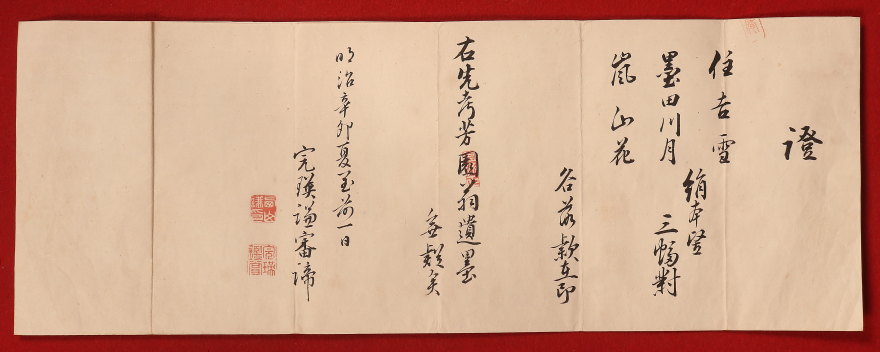 證
住吉雪
墨田川月
嵐山花
絹本竪
三幅對
各落款在印
右先考芳園翁遺墨
無疑矣
明治辛卯夏至前一日
完瑛謹審諦